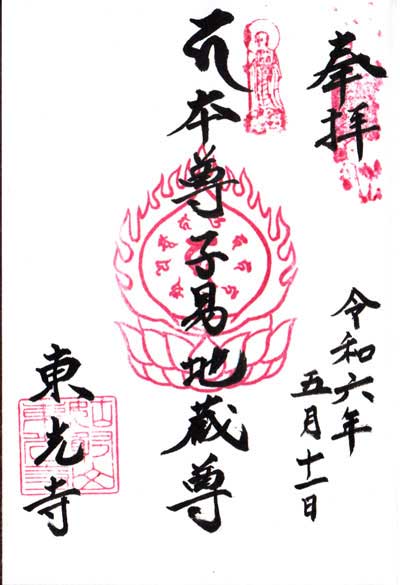 奉拝
令和六年
五月十一日
本尊子易地蔵尊
東光寺